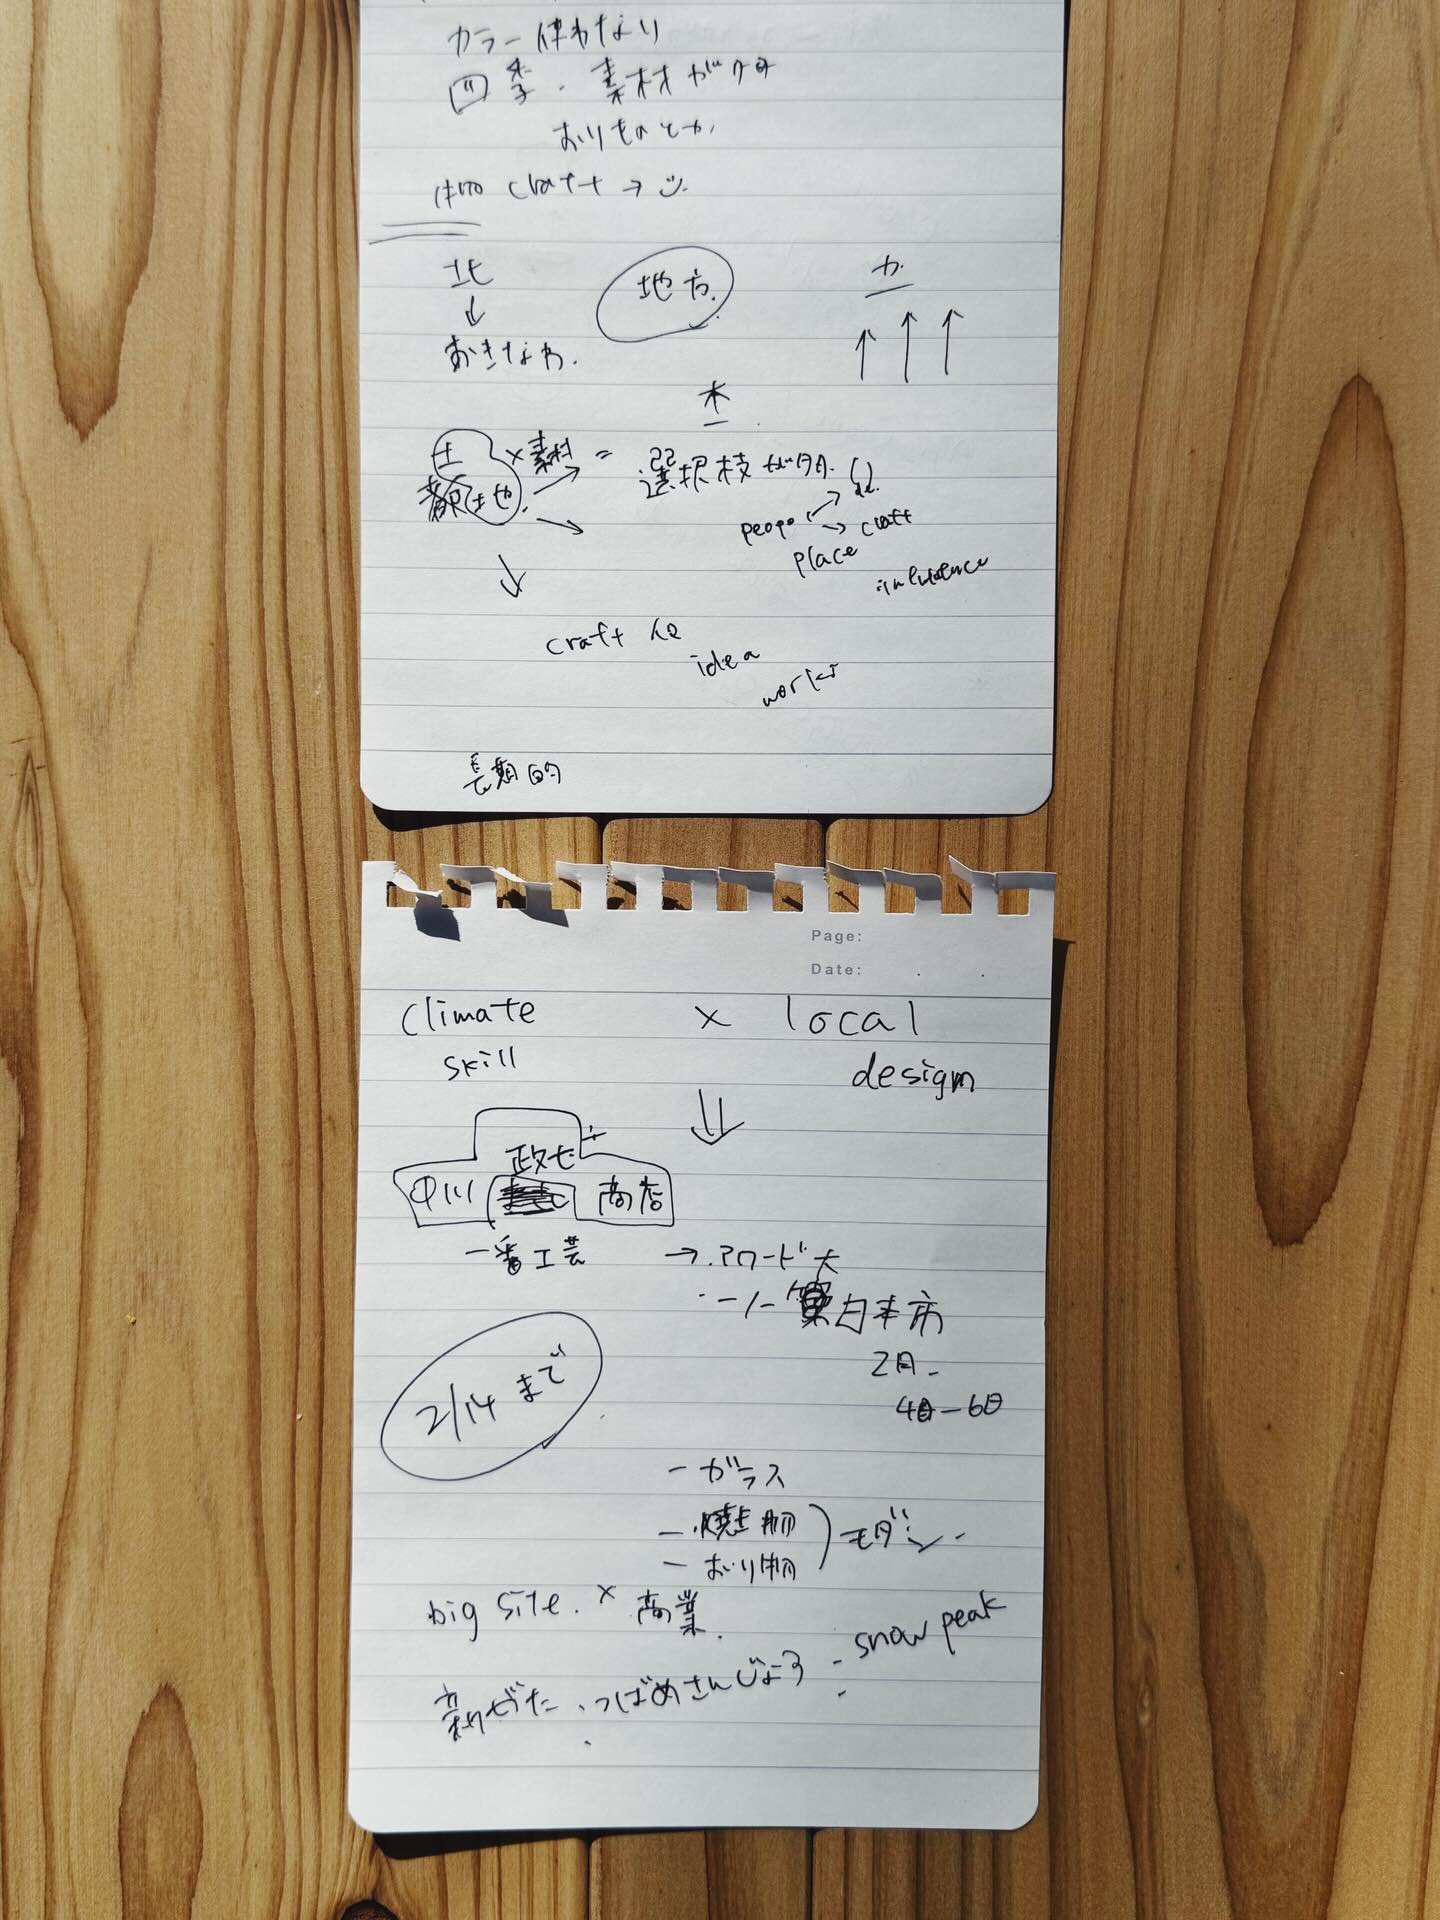 カラー使わない
四季・素材が
おりものとか
craft →
北 地方 力
↓
おきなわ.
木
土 × 素材 = 選択枝が
土地
people → craft
place
influence
craft 化
idea
works
長期的
Page:
Date:
climate × local
skill design
⇓
政七
中川 商店
一番工芸 → ・アワード大
日本市
2月 -
4日 - 6日
2/14 まで
- ガラス
- 焼き物
- おり物 モダン -
big site. × 商業.
新がた・つばめさんじょう - snow peak